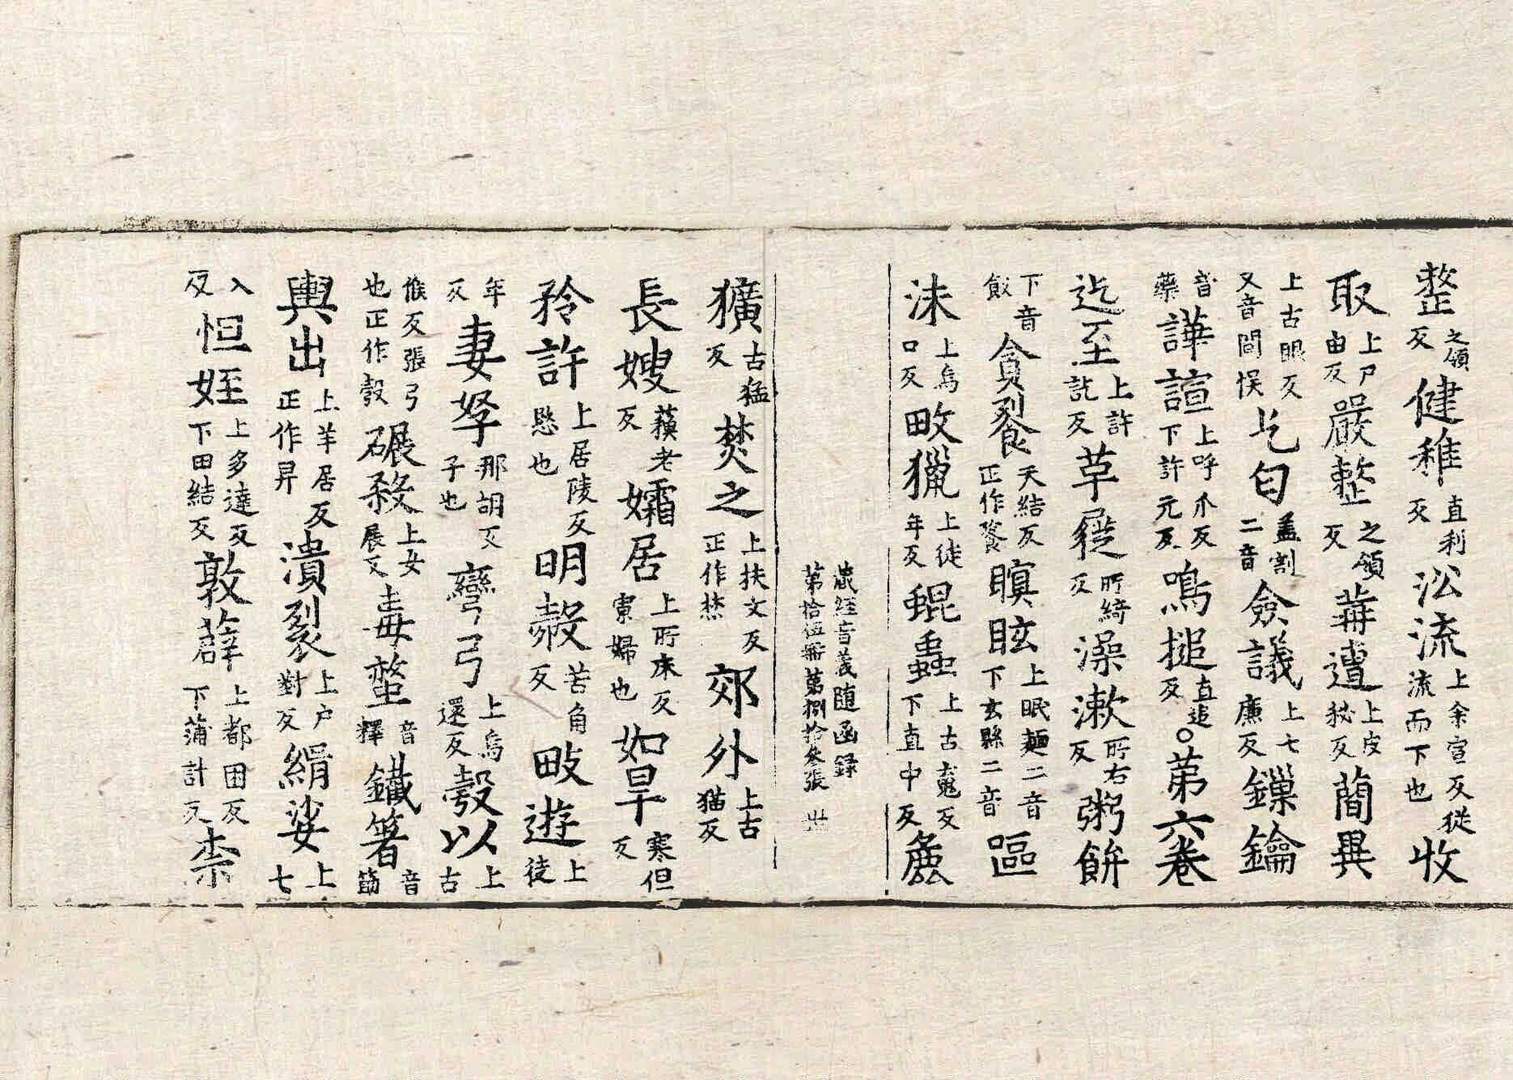 整之領反健稚直利反㳂流上余宣反從流而下也收
取上尸由反嚴整之領反苒遭上皮秘反蕳異
上古眼反又音間悮乞匂蓋割二音僉議上七廉反鏁鑰
音藥譁諠上呼爪反下許元反鳴搥直追反○第六卷
迄至上許訖反草屣所綺反澡漱所右反粥餅
下音飯貪飻天結反正作餮瞑眩上眠麵二音下玄縣二音嘔
沬上烏口反畋獵上徒年反蜫蟲上古䰟反下直中反麁
藏經音義隨函錄
第拾伍冊第捌拾叁張 世
獷古猛反焚之上扶文反正作焚郊外上古猫反
長嫂蘓老反孀居上所床反寡婦也如旱寒但反
矜許上居陵反愍也明㲉苦角反畋遊上徒
年反妻孥那胡反子也彎弓上烏還反彀以上古
候反張弓也正作彀碾殺上女展反毒螫音釋鐵箸音筯
輿出上羊居反正作舁潰裂上户對反絹娑上七
入反怛姪上多達反下田結反敦薜上都困反下蒲計反柰